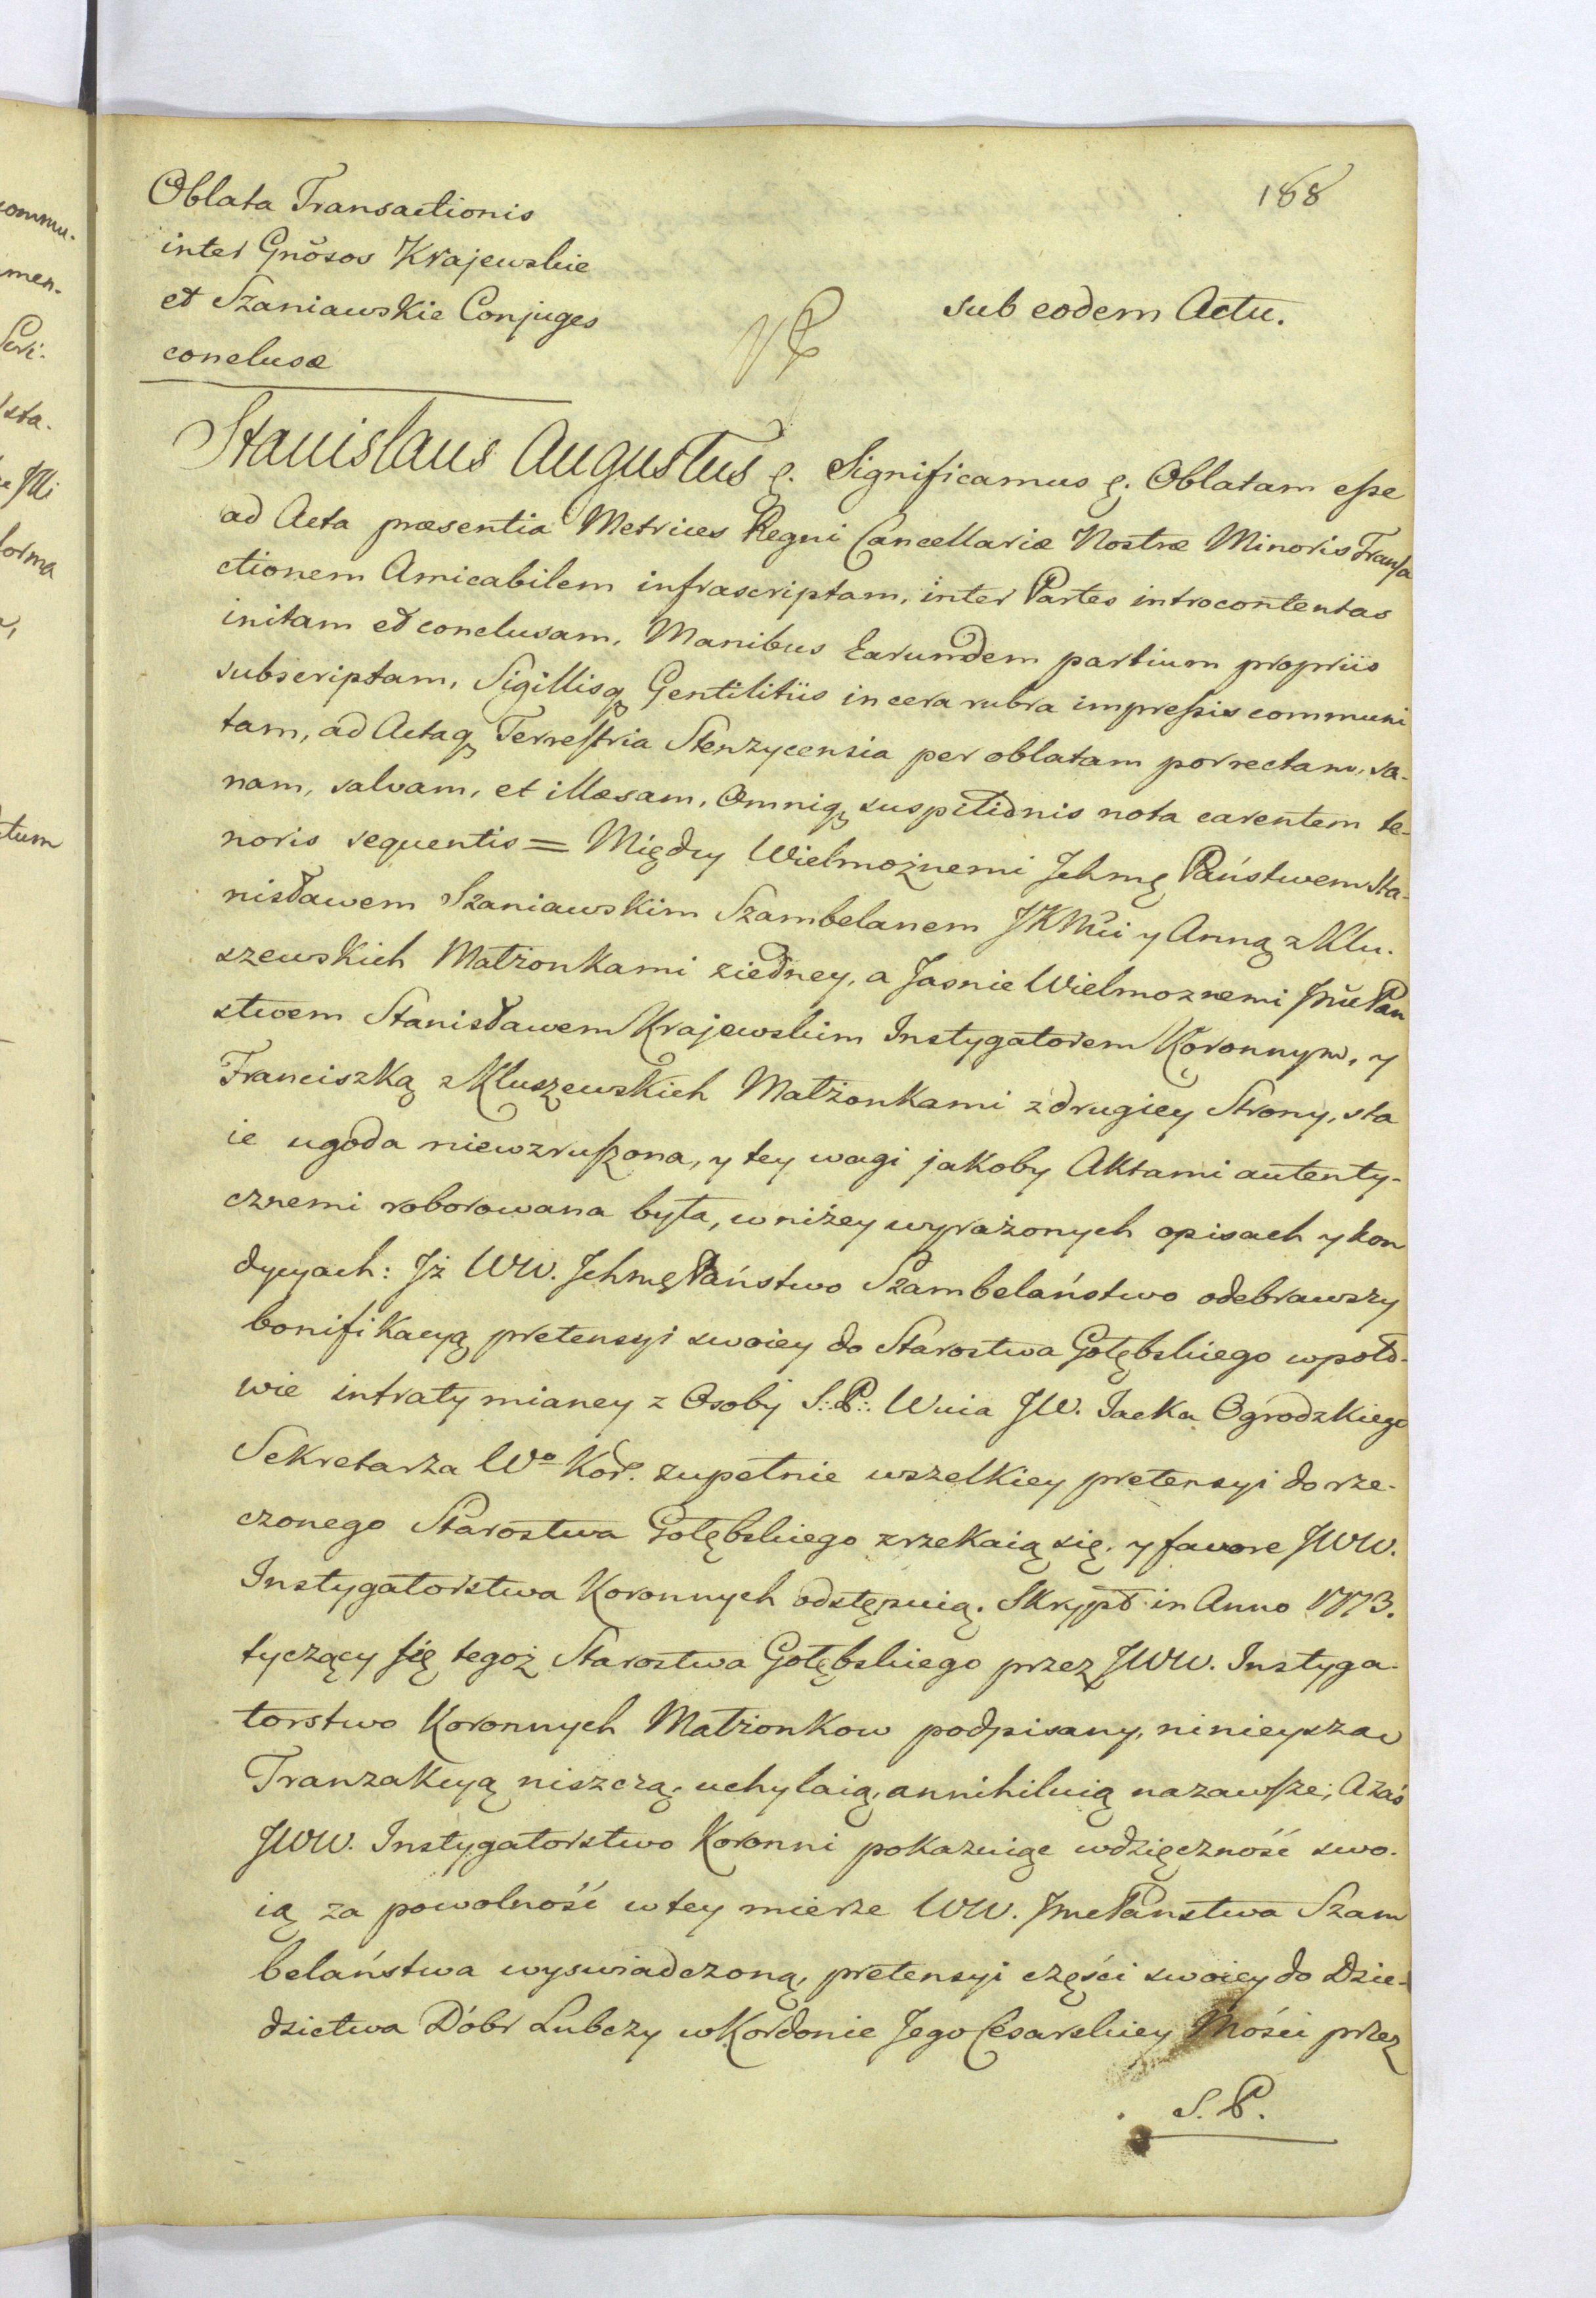 188
Oblata Transactionis
inter Gnõsos Krajewskie
et Szaniawskie Conjuges
conclusæ
sub eodem Actu.
Stanislaus Augustus &. Significamus &. Oblatam esse
ad Acta præsentia Metrices Regni Cancellariæ Nostræ Minoris Transa
ctionem Amicabilem infrascriptam, inter Partes introcontentas
initam et conclusam, Manibus Earundem partium propriis
subscriptam, Sigillisq Gentilitiis in cera rubra impressis communi
tam, ad Actaq Terrestria Stenzycensia per oblatam porrectam, sa-
nam, salvam, et illæsam, Omniq suspitionis nota carentem te-
noris sequentis = Między Wielmożnemi Jchmę Państwem Sta-
nisławem Szaniawskim Szambelanem JKMci y Anną z Klu-
szewskich Małżonkami z iedney, a Jasnie Wielmoznemi Jmć Pan
stwem Stanisławem Krajewskim Instygatorem Koronnym, y
Franciszką z Kluszewskich Małżonkami z drugiey Strony, sta
ie ugoda niewzruszona, y tey wagi jakoby Aktami autenty-
cznemi roborowana była, w niżey wyrażonych opisach y kon
dycyach: Jż WW. Jchmę Państwo Szambelaństwo odebrawszy
bonifikacyą pretensyi swoiey do Starostwa Gołębskiego w poło-
wie intraty mianey z Osoby S:P: Wuia JW. Jacka Ogrodzkiego
Sekretarza Wo Kor. zupełnie wszelkiey pretensyi do rze-
czonego Starostwa Gołębskiego zrzekaią się, y favore JWW.
Instygatorstwa Koronnych odstępuią. Skrypt in Anno 1773.
tyczący się tegoż Starostwa Gołębskiego przez JWW. Instyga-
torstwo Koronnych Małżonkow podpisany, ninieyszą
Tranzakcyą niszczą, uchylaią, annihiluią nazawsze; A zaś
JWW. Instygatorstwo Koronni pokazuiąc wdzięczność swo-
ią za powolność w tey mierze WW. Jmć Panstwa Szam
belaństwa wyswiadczoną, pretensyi części swoiey do Dzie-
dzictwa Dóbr Lubczy w Kordonie Jego Cesarskiey Mości przez
S. P.